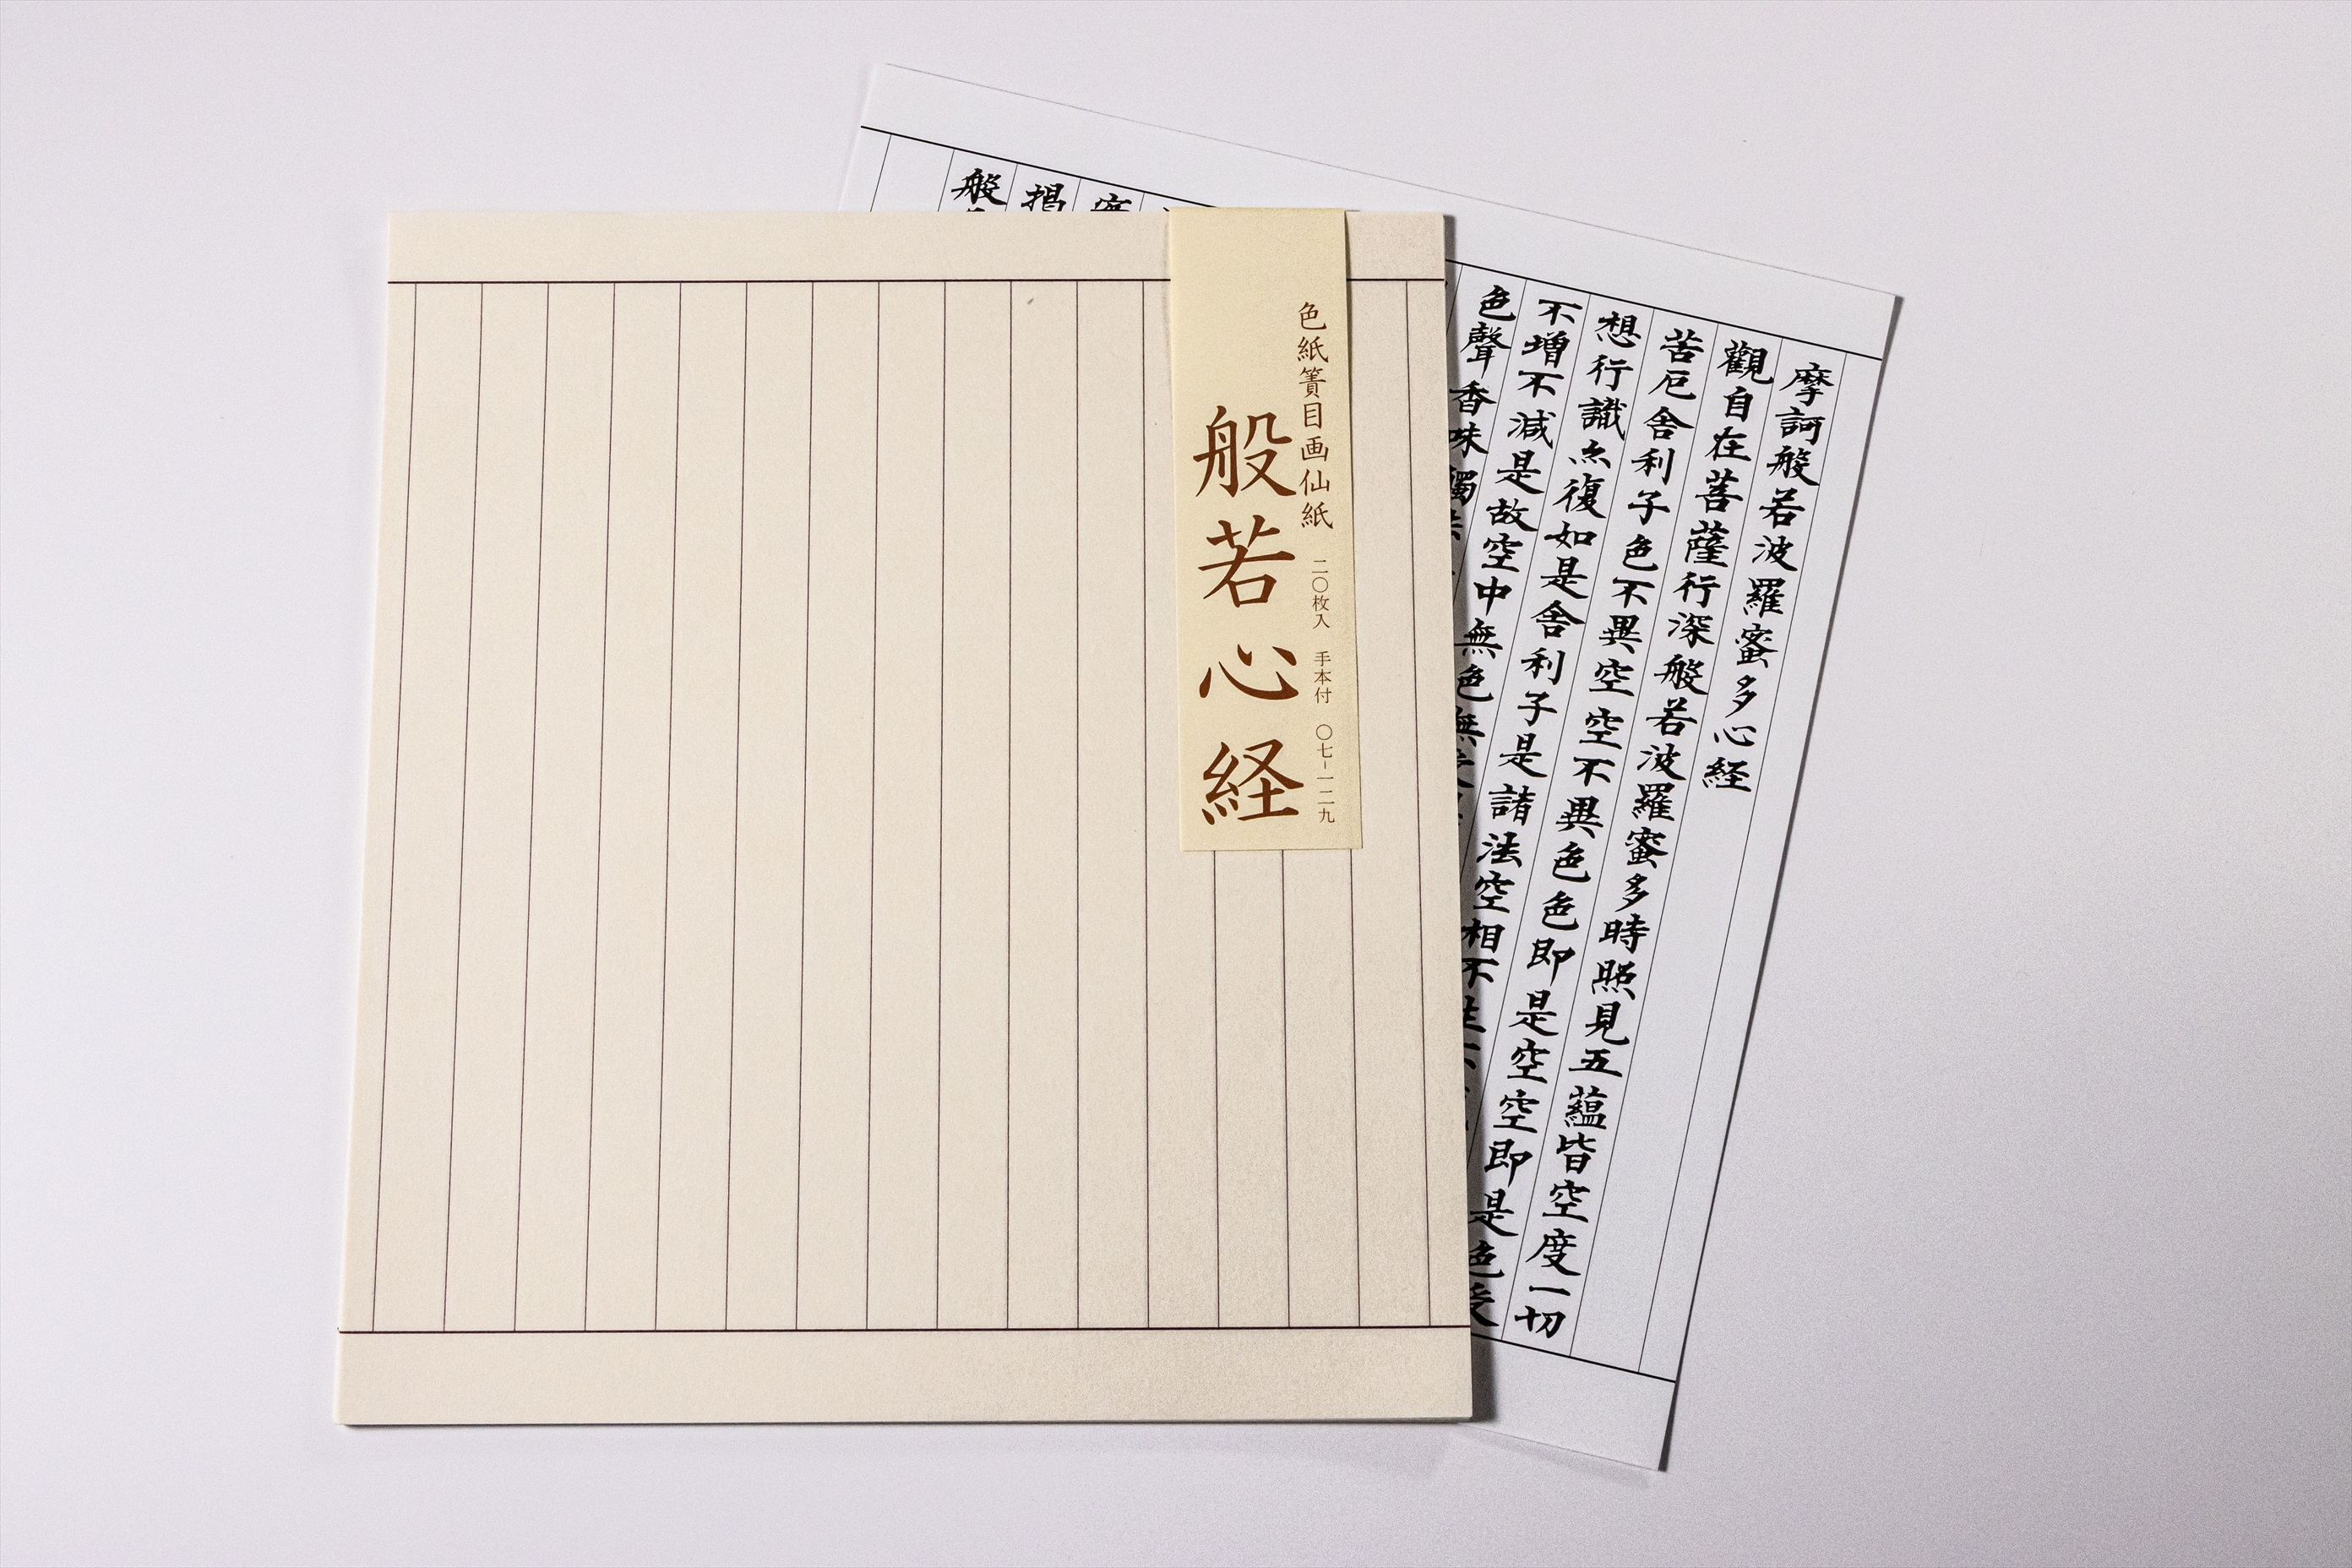 色紙簀目画仙紙 二〇枚入 手本付 〇七-一二九
般若心経
摩訶般若波羅蜜多心経
觀自在菩薩行深般若波羅蜜多時照見五蘊皆空度一切
苦厄舎利子色不異空空不異色色即是空空即是色受
想行識亦復如是舎利子是諸法空相不生不
不増不減是故空中無色無受
色聲香味觸法
揭
般